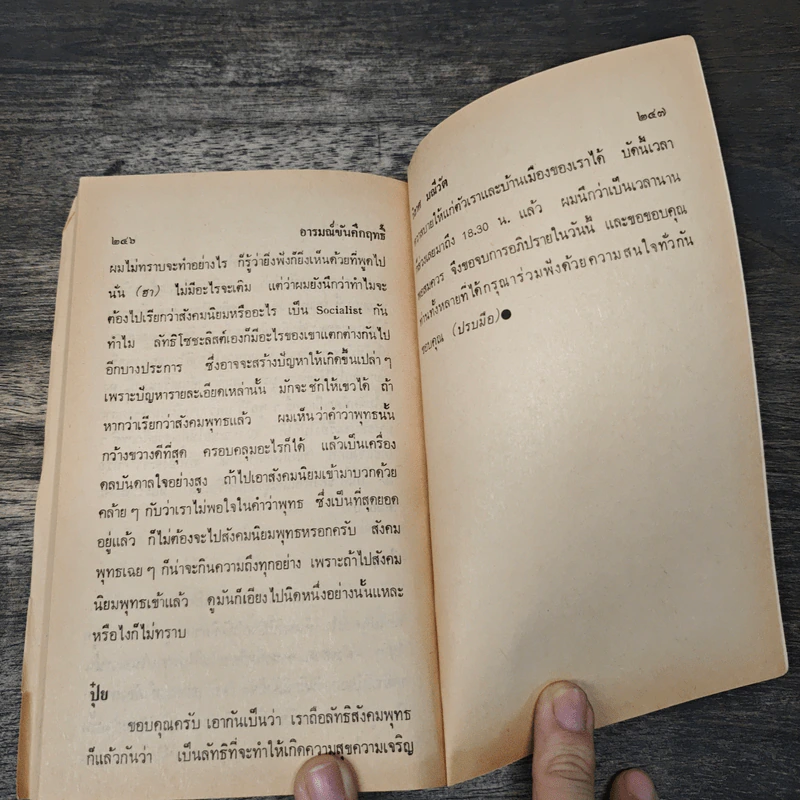 ๒๔๖ อารมณ์ขันคึกฤทธิ์
ผมไม่ทราบจะทำอย่างไร ก็รู้ว่ายิ่งฟังก็ยิ่งเห็นด้วยที่พูดไป
นั่น (ฮา) ไม่มีอะไรจะเติม แต่ว่าผมยังนึกว่าทำไมจะ
ต้องไปเรียกว่าสังคมนิยมหรืออะไร เป็น Socialist กัน
ทำไม ลัทธิโซชะลิสต์เองก็มีอะไรของเขาแตกต่างกันไป
อีกบางประการ ซึ่งอาจจะสร้างปัญหาให้เกิดขึ้นเปล่า ๆ
เพราะปัญหารายละเอียดเหล่านั้น มักจะชักให้เขวได้ ถ้า
หากว่าเรียกว่าสังคมพุทธแล้ว ผมเห็นว่าคำว่าพุทธนั้น
กว้างขวางดีที่สุด ครอบคลุมอะไรก็ได้ แล้วเป็นเครื่อง
ดลบันดาลใจอย่างสูง ถ้าไปเอาสังคมนิยมเข้ามาบวกด้วย
คล้าย ๆ กับว่าเราไม่พอใจในคำว่าพุทธ ซึ่งเป็นที่สุดยอด
อยู่แล้ว ก็ไม่ต้องจะไปสังคมนิยมพุทธหรอกครับ สังคม
พุทธเฉย ๆ ก็น่าจะกินความถึงทุกอย่าง เพราะถ้าไปสังคม
นิยมพุทธเข้าแล้ว ดูมันก็เอียงไปนิดหนึ่งอย่างนั้นแหละ
หรือไงก็ไม่ทราบ
ปุ๋ย
ขอบคุณครับ เอากันเป็นว่า เราถือลัทธิสังคมพุทธ
ก็แล้วกันว่า เป็นลัทธิที่จะทำให้เกิดความสุขความเจริญ
๒๔๗
มณีวัต
ให้แก่ตัวเราและบ้านเมืองของเราได้ บัดนี้เวลา
ก็ล่วงเลยมาถึง 18.30 น. แล้ว ผมนึกว่าเป็นเวลานาน
พอสมควร จึงขอจบการอภิปรายในวันนี้ และขอขอบคุณ
ท่านทั้งหลายที่ได้กรุณาร่วมฟังด้วยความสนใจทั่วกัน
ขอบคุณ (ปรบมือ)●